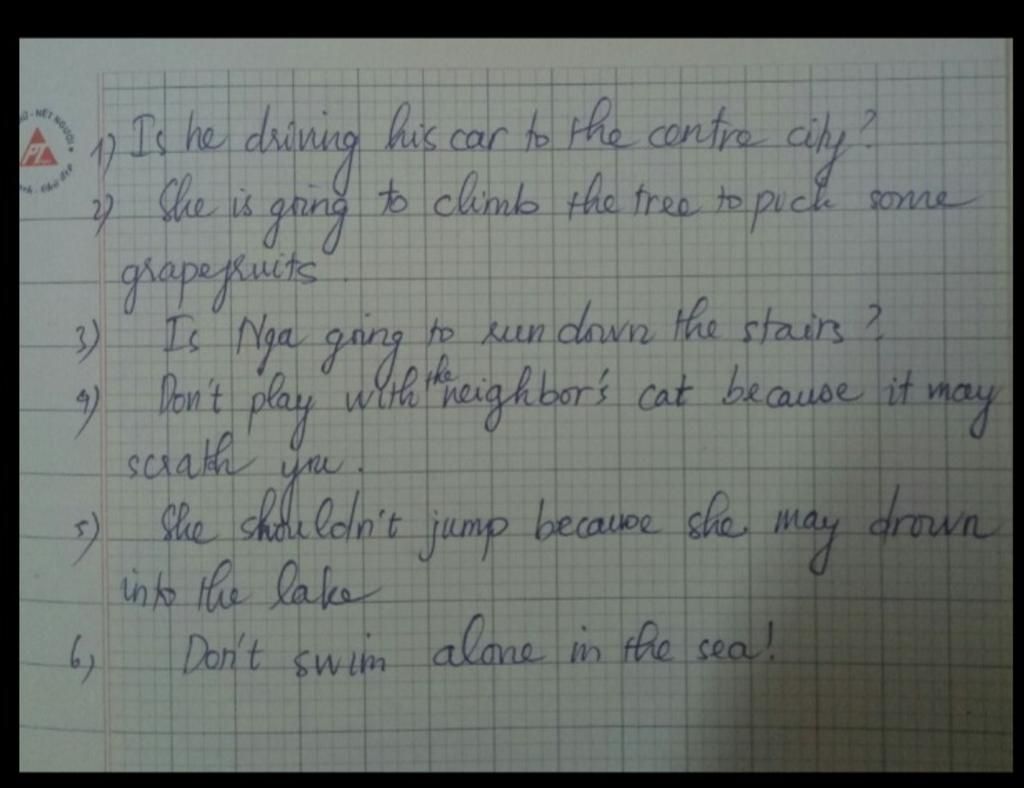 1) Is he driving his car to the centre city?
2) She is going to climb the tree to pick some
grapefruits.
3) Is Nga going to run down the stairs?
4) Don't play with the neighbor's cat because it may
scrath you.
5) She shouldn't jump because she may drown
into the lake
6) Don't swim alone in the sea!
NÉT NGƯỜI
PTL